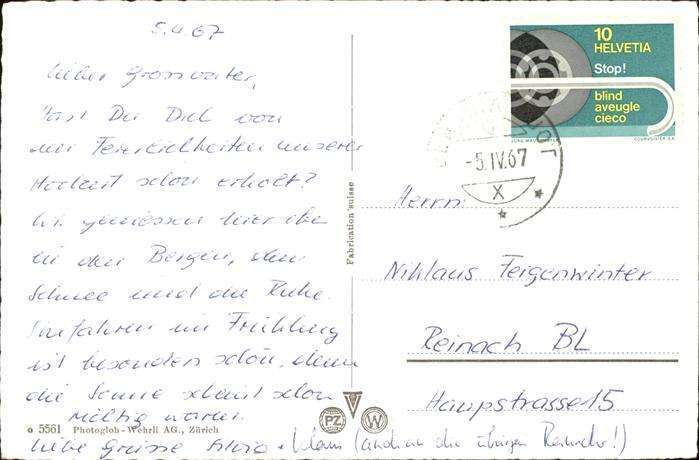 5.4.67
Lieber Grossvater,
Hast Du Dich von
den Feierlichkeiten unserer
Hochzeit schon erholt?
Wir geniessen hier oben
in den Bergen, den
Schnee und die Ruhe.
Skifahren im Frühling
ist besonders schön, denn
die Sonne scheint schon
mächtig warm.
Liebe Grüsse + Klaus (auch an die übrigen Reinacher!)
5561 Photoglob-Wehrli AG., Zürich
Fabrication suisse
PZ
W
10
HELVETIA
Stop!
blind
aveugle
cieco
COURVOISIER S.A.
-5.IV.67
X
Herrn
Niklaus Feigenwinter
Reinach BL
Hauptstrasse 15